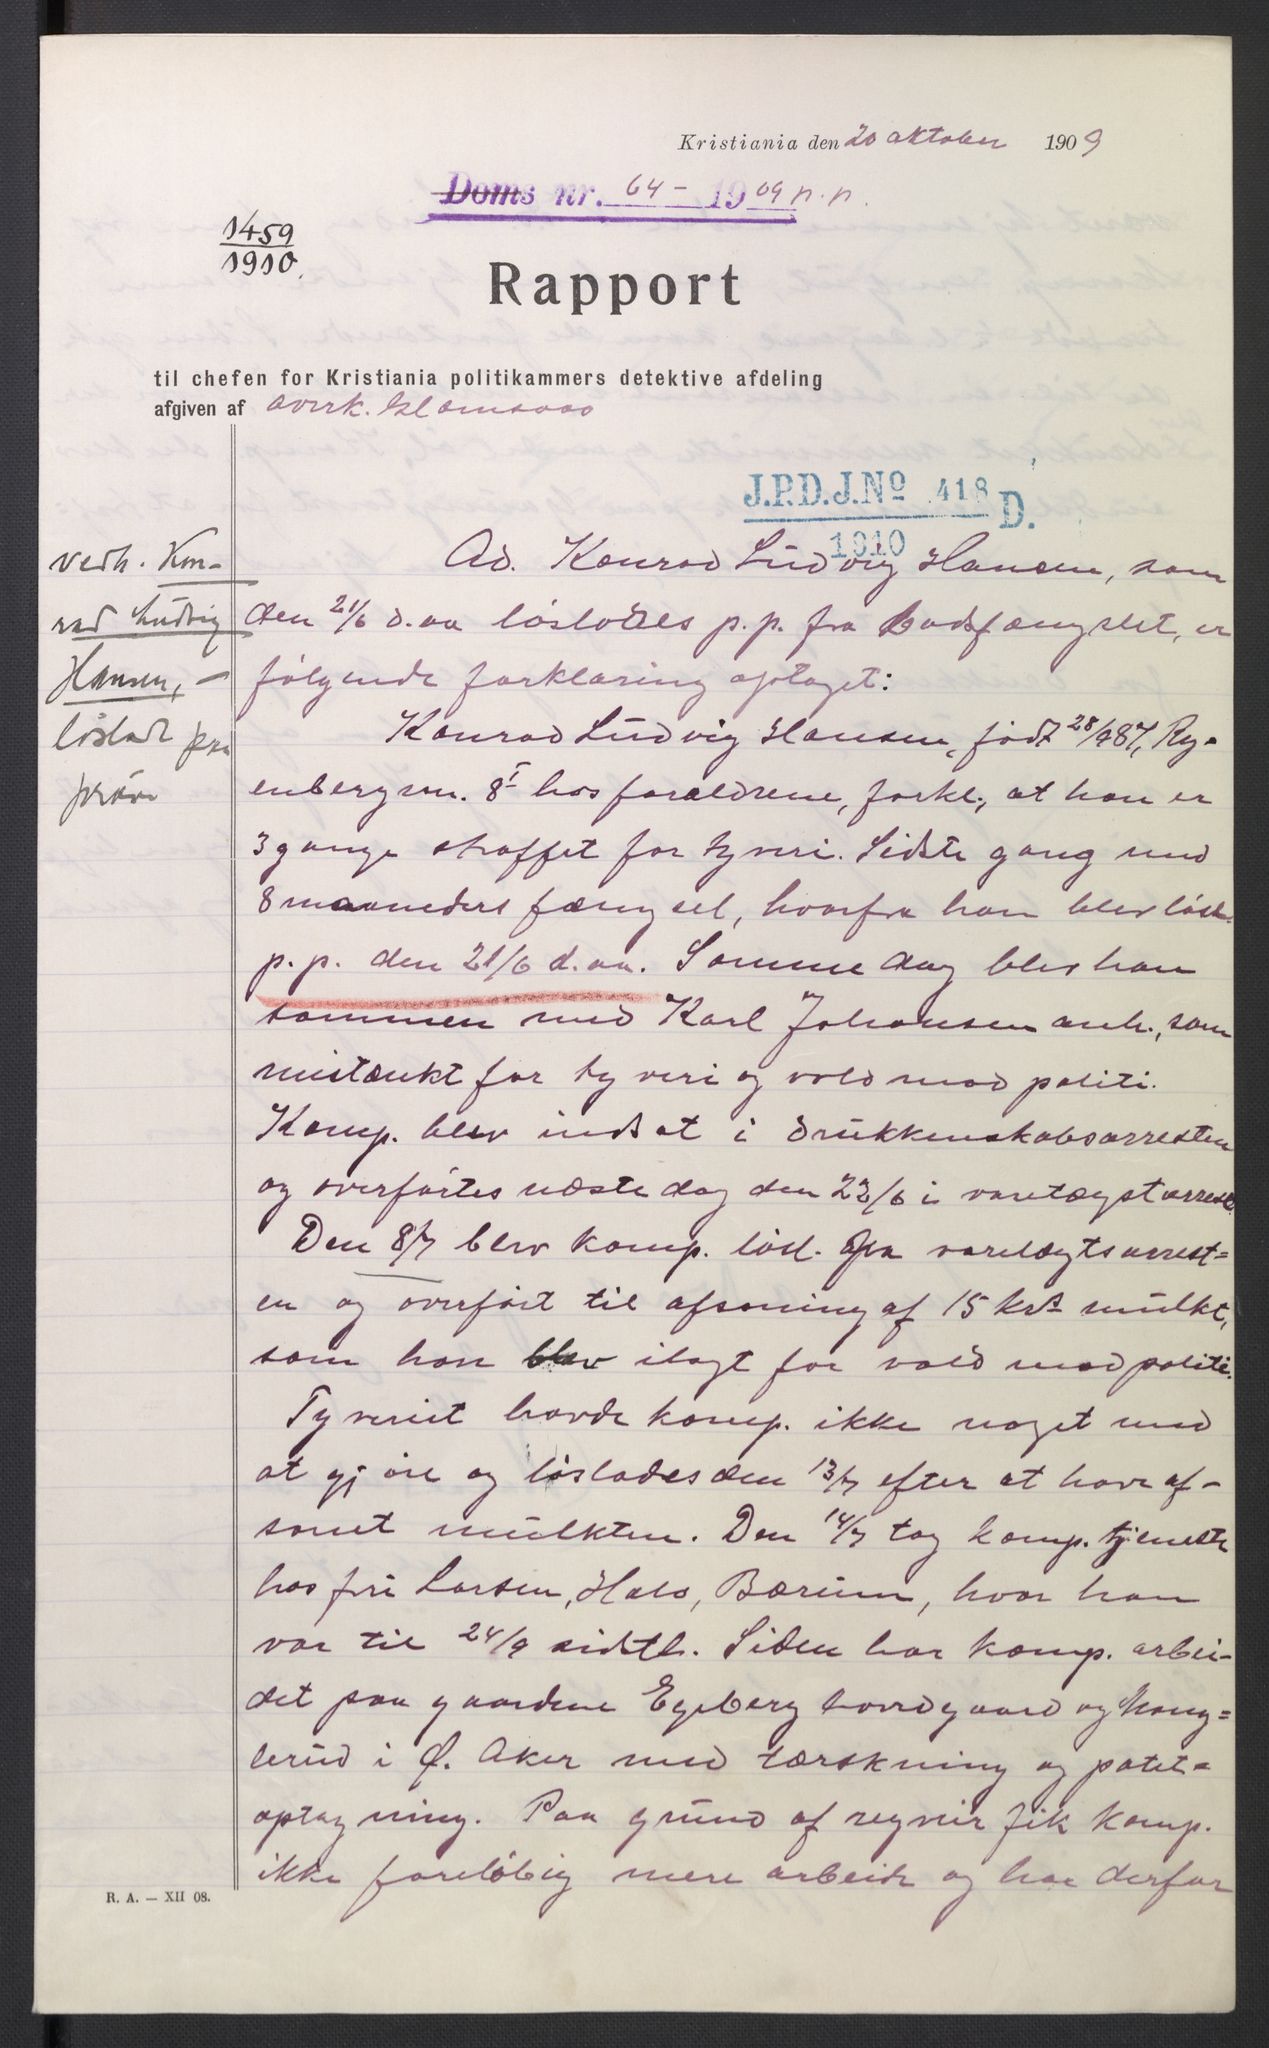 Kristiania den 20 oktober 1909
Doms nr. 64 - 1909 p.p.
1459
1910.
Rapport
til chefen for Kristiania politikammers detektive afdeling
afgiven af overk.
J.P.D.J.No 418 D.
1910
vedh. Kon-
rad Ludvig
Hansen, -
løsladt paa
prøve
Ad. Konrad Ludvig Hansen, som
den 21/6 d.aa løslodes p.p. fra Bodsfængslet, er
følgende forklaring optaget:
Konrad Ludvig Hansen, født 28/9 87, Ry-
enbergvn. 8 I hos forældrene, forkl., at han er
3 gange straffet for tyveri. Sidste gang med
8 maaneders fængsel, hvorfra han blev løsl.
p.p. den 21/6 d.aa. Samme dag blev han
sammen med Karl Johansen anh., som
mistænkt for tyveri og vold mod politi.
Komp. blev indsat i drukkenskabsarresten
og overførtes næste dag den 22/6 i varetægtsarrest.
Den 8/7 blev komp. løsl. fra varetægtsarrest-
en og overført til afsoning af 15 krs mulkt,
som han blev ilagt for vold mod politi.
Tyveriet havde komp. ikke noget med
at gjøre og løslodes den 13/7 efter at have af-
sonet mulkten. Den 14/7 tog komp. tjeneste
hos fru Larsen, Hals, Bærum, hvor han
var til 24/9 sidstl. Siden har komp. arbei-
det paa gaardene Egeberg hovedgaard og Mang-
lerud i Ø. Aker med tærskning og potet-
optagning. Paa grund af regnveir fik komp.
ikke foreløbig mere arbeide og har derfor
R. A. — XII 08.